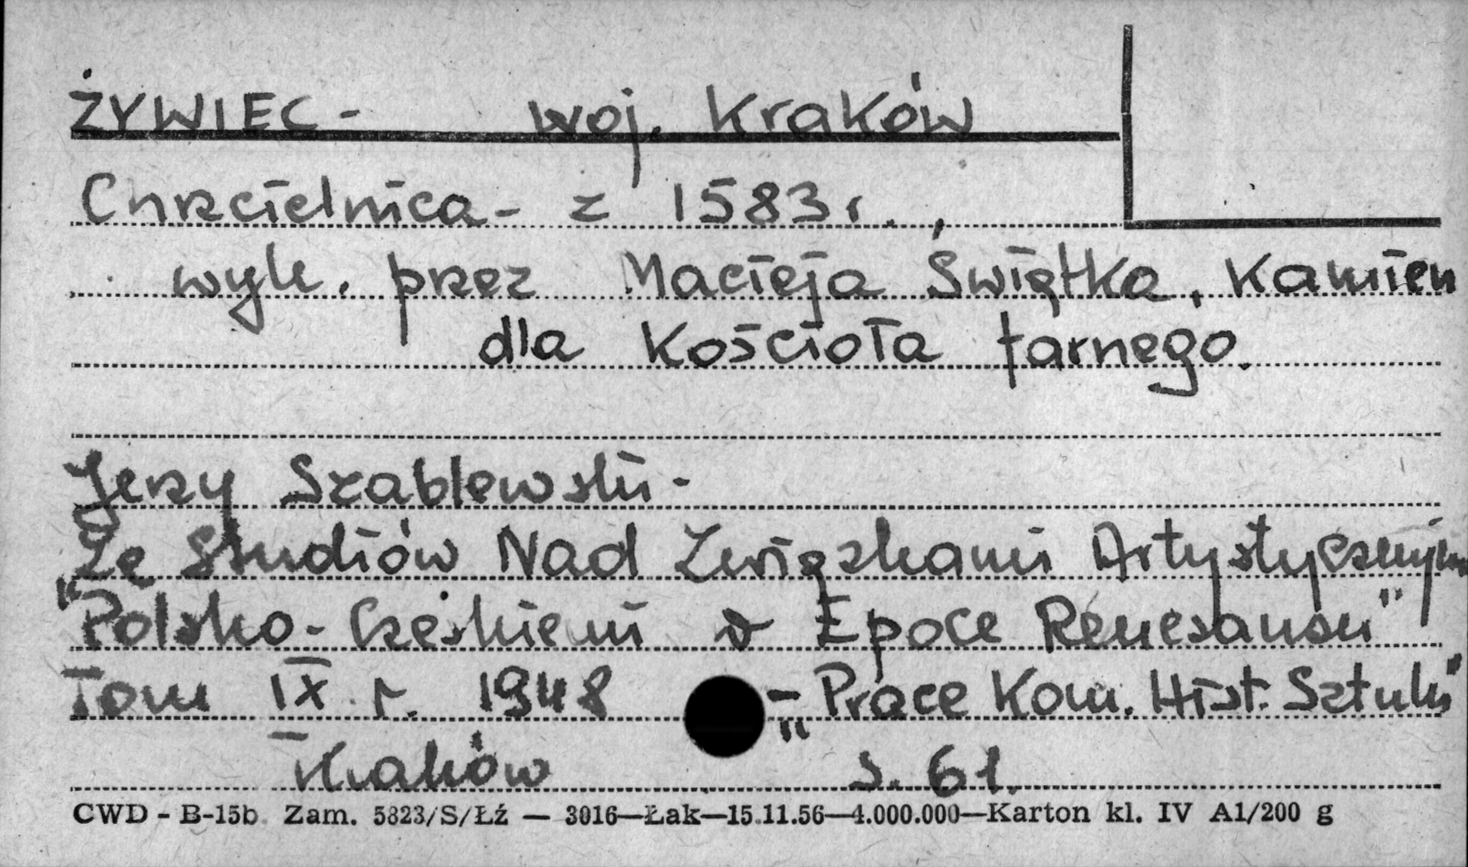 ŻYWIEC - woj. Kraków
Chrzcielnica - z 1583 r.,
wyk. przez Macieja Świątka, Kamien
dla Kościoła farnego.
Jerzy Szablewski -
"Ze Studiów Nad Związkami Artystycznym
Polsko-Czeskiemi w Epoce Renesansu"
Tom IX r. 1948 - "Prace Kom. Hist. Sztuki"
Kraków s. 61.
CWD - B-15b Zam. 5823/S/Łź — 3016—Łak—15.11.56—4.000.000—Karton kl. IV A1/200 g